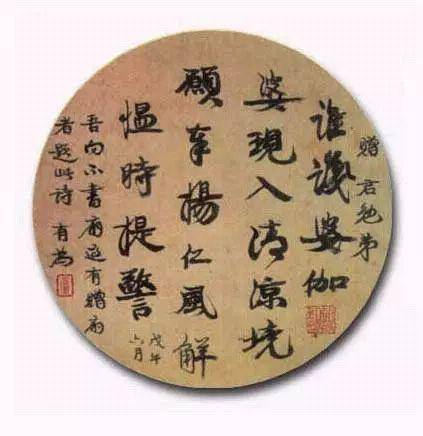 贈君勉弟
誰識婆伽
婆現入清涼境
願奉揚仁風解
慍時提警
戊午
六月
吾向不書扇近有贈扇
者題此詩 有為